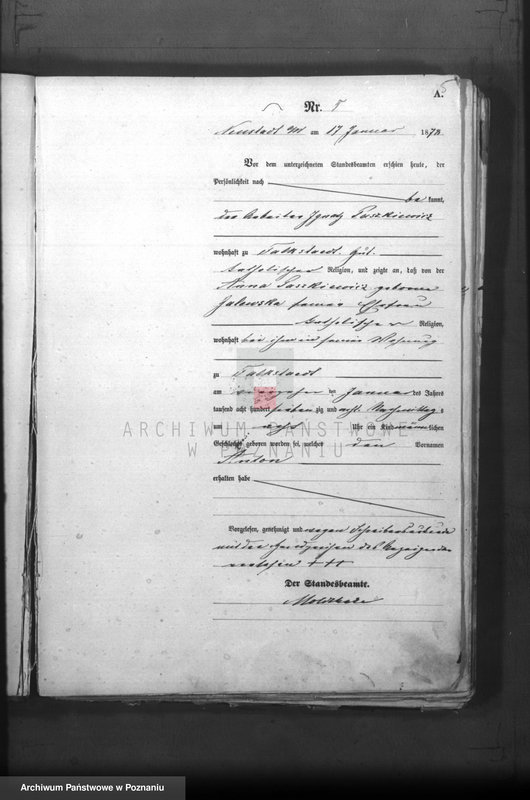 A.
Nr. 5
Neustadt am 17 Januar 187
Vor dem unterzeichneten Standesbeamten erschien heute, der
Persönlichkeit nach
be kannt,
der Arbeiter Ignatz Paszkiewicz
wohnhaft zu Falkstaedt. Gut.
katholischer Religion, und zeigte an, daß von der
Anna Paszkiewicz geborene
seiner Ehefrau
katholischer Religion,
wohnhaft bei ihm in seiner Wohnung
zu Falkstaedt
am ten Januar des Jahres
tausend acht hundert sieben zig und acht Nachmittags
um acht Uhr ein Kind männlichen
Geschlechts geboren worden sei, welches den Vornamen
Anton
erhalten habe
Vorgelesen, genehmigt und wegen
mit den Handzeichen des
versehen +++
Der Standesbeamte.
ARCHIWUM PAŃSTWOWE
W POZNANIU
Archiwum Państwowe w Poznaniu
Archiwum Państwowe w Poznaniu